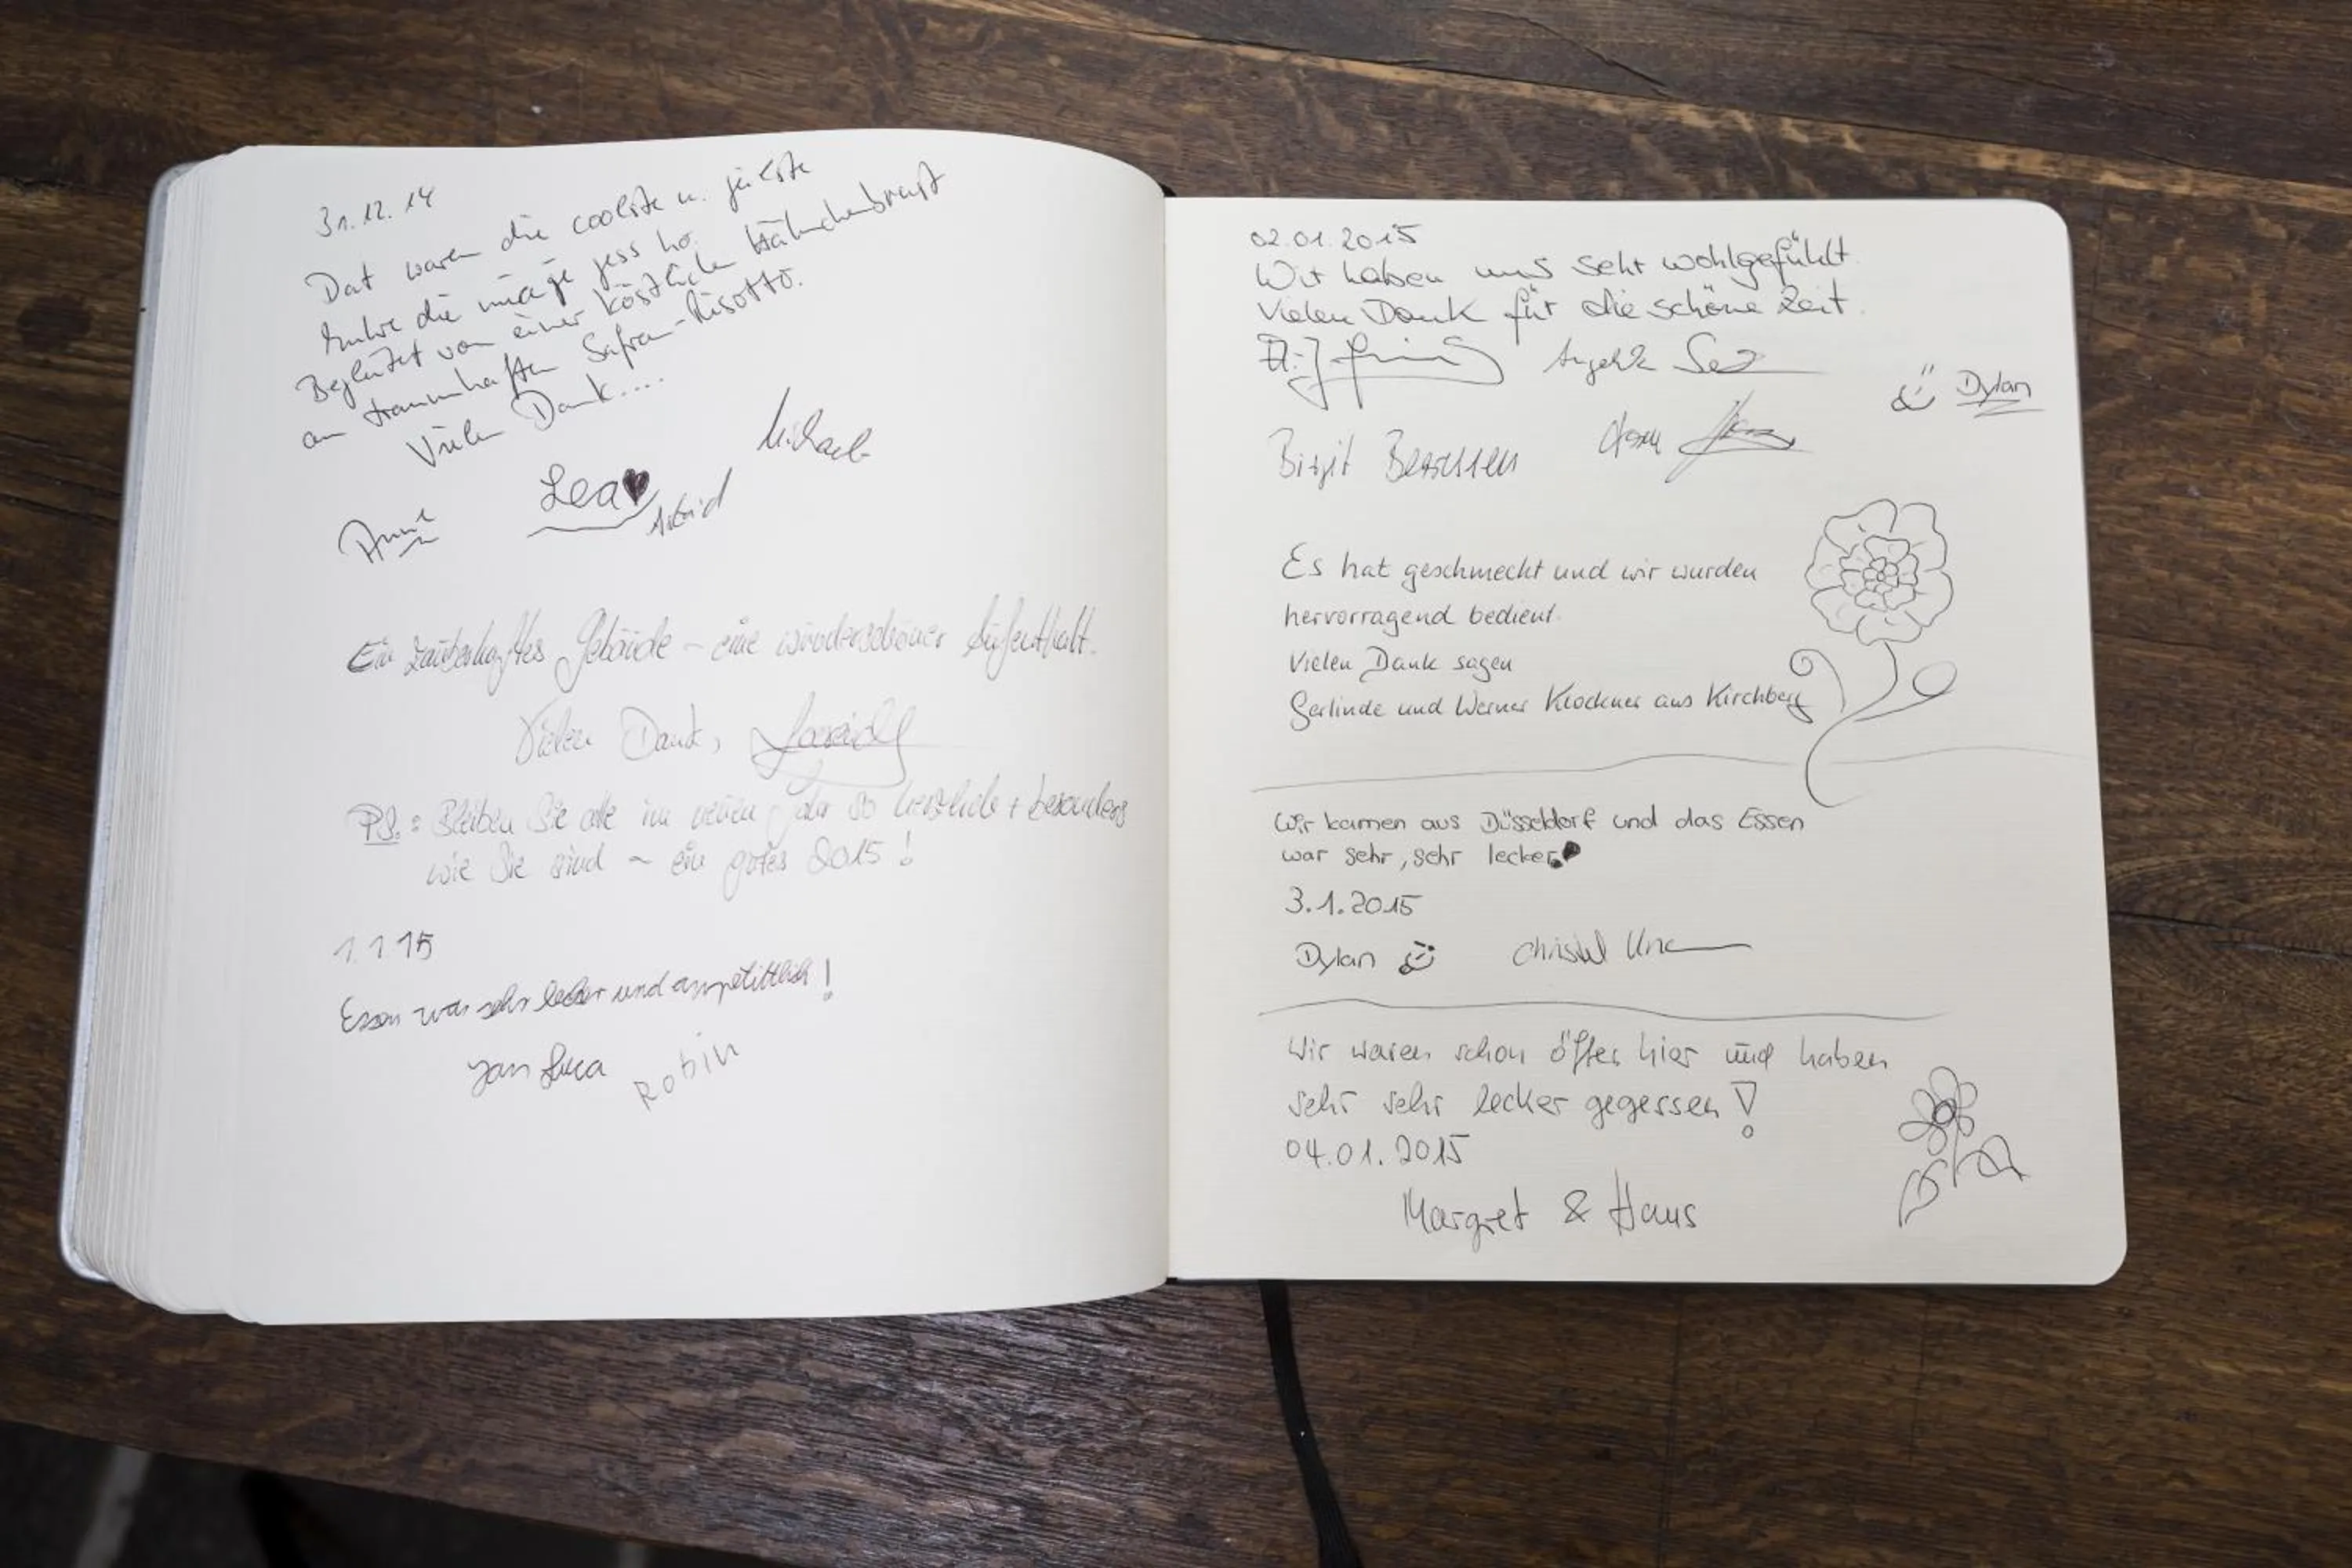 31.12.14
Dat waren die coolste u.
die
Begleitet von einer köstlichen Hähnchenbrust
an traumhaften Safran-Risotto.
Vielen Dank....
Michael
Lea
Astrid
Ein zauberhaftes Gebäude – eine wunderschöner Aufenthalt.
Vielen Dank,
PS.: Bleiben Sie alle im neuen Jahr so herzlich + besonders
wie Sie sind ~ ein gutes 2015!
1.1.15
Essen war sehr lecker und appetittlich!
Jan Luca
Robin
02.01.2015
Wir haben uns sehr wohlgefühlt.
Vielen Dank für die schöne Zeit.
Angelika
Dylan
Birgit
Es hat geschmeckt und wir wurden
hervorragend bedient.
Vielen Dank sagen
Gerlinde und Werner Klockner aus Kirchberg
Wir kamen aus Düsseldorf und das Essen
war sehr, sehr lecker
3.1.2015
Dylan Christel
Wir waren schon öfter hier und haben
sehr sehr lecker gegessen!
04.01.2015
Margret & Hans